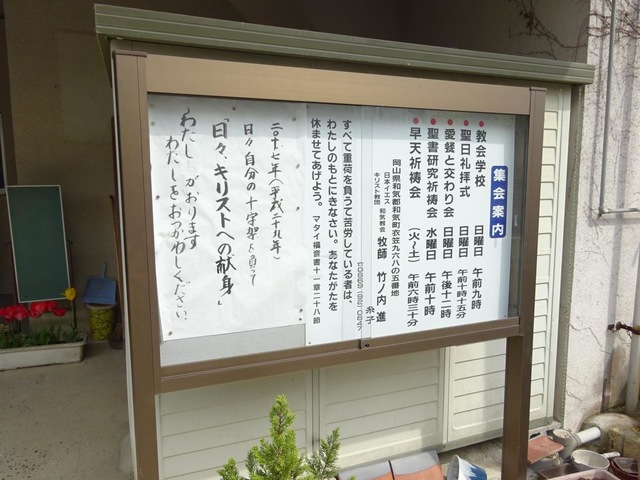 集会案内
●教会学校 日曜日 午前九時
●聖日礼拝式 日曜日 午前十時十五分
●愛餐と交わり会 日曜日 午後十二時
●聖書研究祈祷会 水曜日 午前十時
●早天祈祷会 (火~土) 午前六時三十分
岡山県和気郡和気町衣笠九六八の五番地
日本イエス
キリスト教団 和気教会 牧師 竹ノ内 進
糸子
すべて重荷を負うて苦労している者は、
わたしのもとにきなさい。あなたがたを
休ませてあげよう。 マタイ福音書十一章二十八節
二〇十七年(平成二十九年)
日々自分の十字架を負って
「日々、キリストへの献身」
わたしがおります
わたしをおつかわしください。